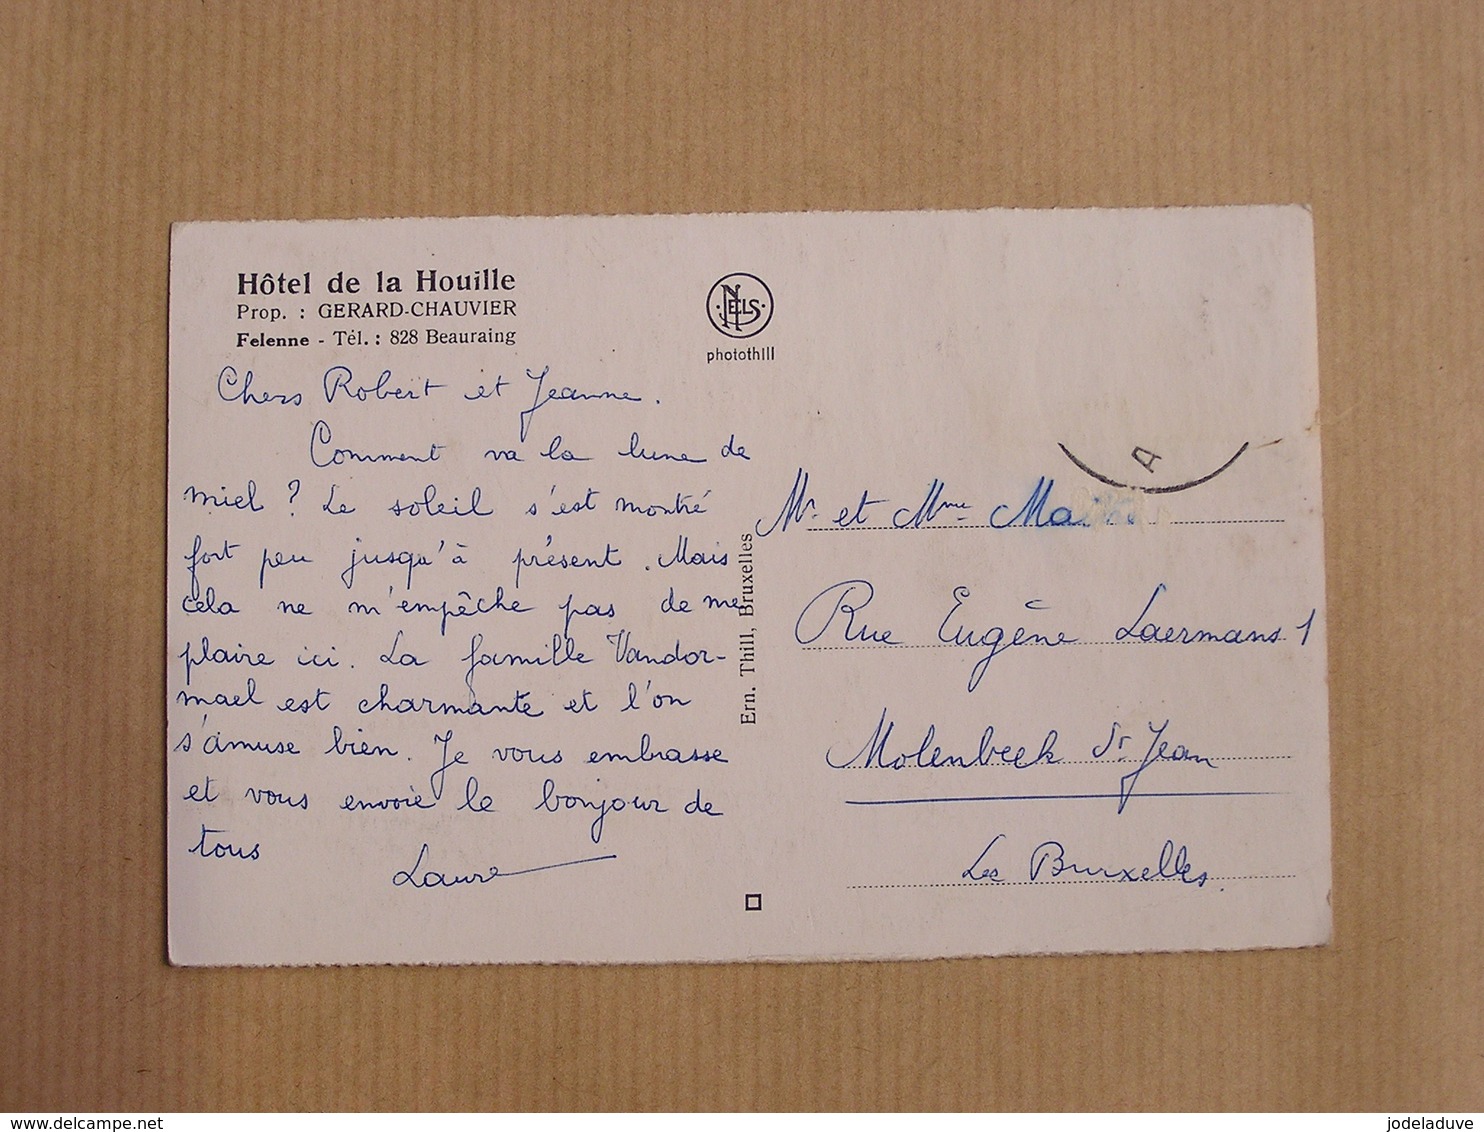 Hôtel de la Houille
Prop. : GERARD-CHAUVIER
Felenne - Tél. : 828 Beauraing
NELS
photothill
Chers Robert et Jeanne.
Comment va la lune de
miel ? Le soleil s'est montré
fort peu jusqu'à présent. Mais
cela ne m'empêche pas de me
plaire ici. La famille Vandor-
mael est charmante et l'on
s'amuse bien. Je vous embrasse
et vous envoie le bonjour de
tous
Laure
Ern. Thill, Bruxelles
A
Mr. et Mme
Rue Eugêne Laermans 1
Molenbeek St Jean
Les Bruxelles.
delcampe.net
jodeladuve